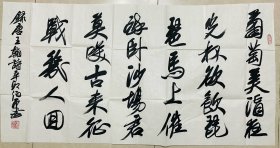 葡萄美酒夜
光杯欲飲琵
琶馬上催
醉卧沙場君
莫笑古来征
戰幾人回
錄唐王翰詩